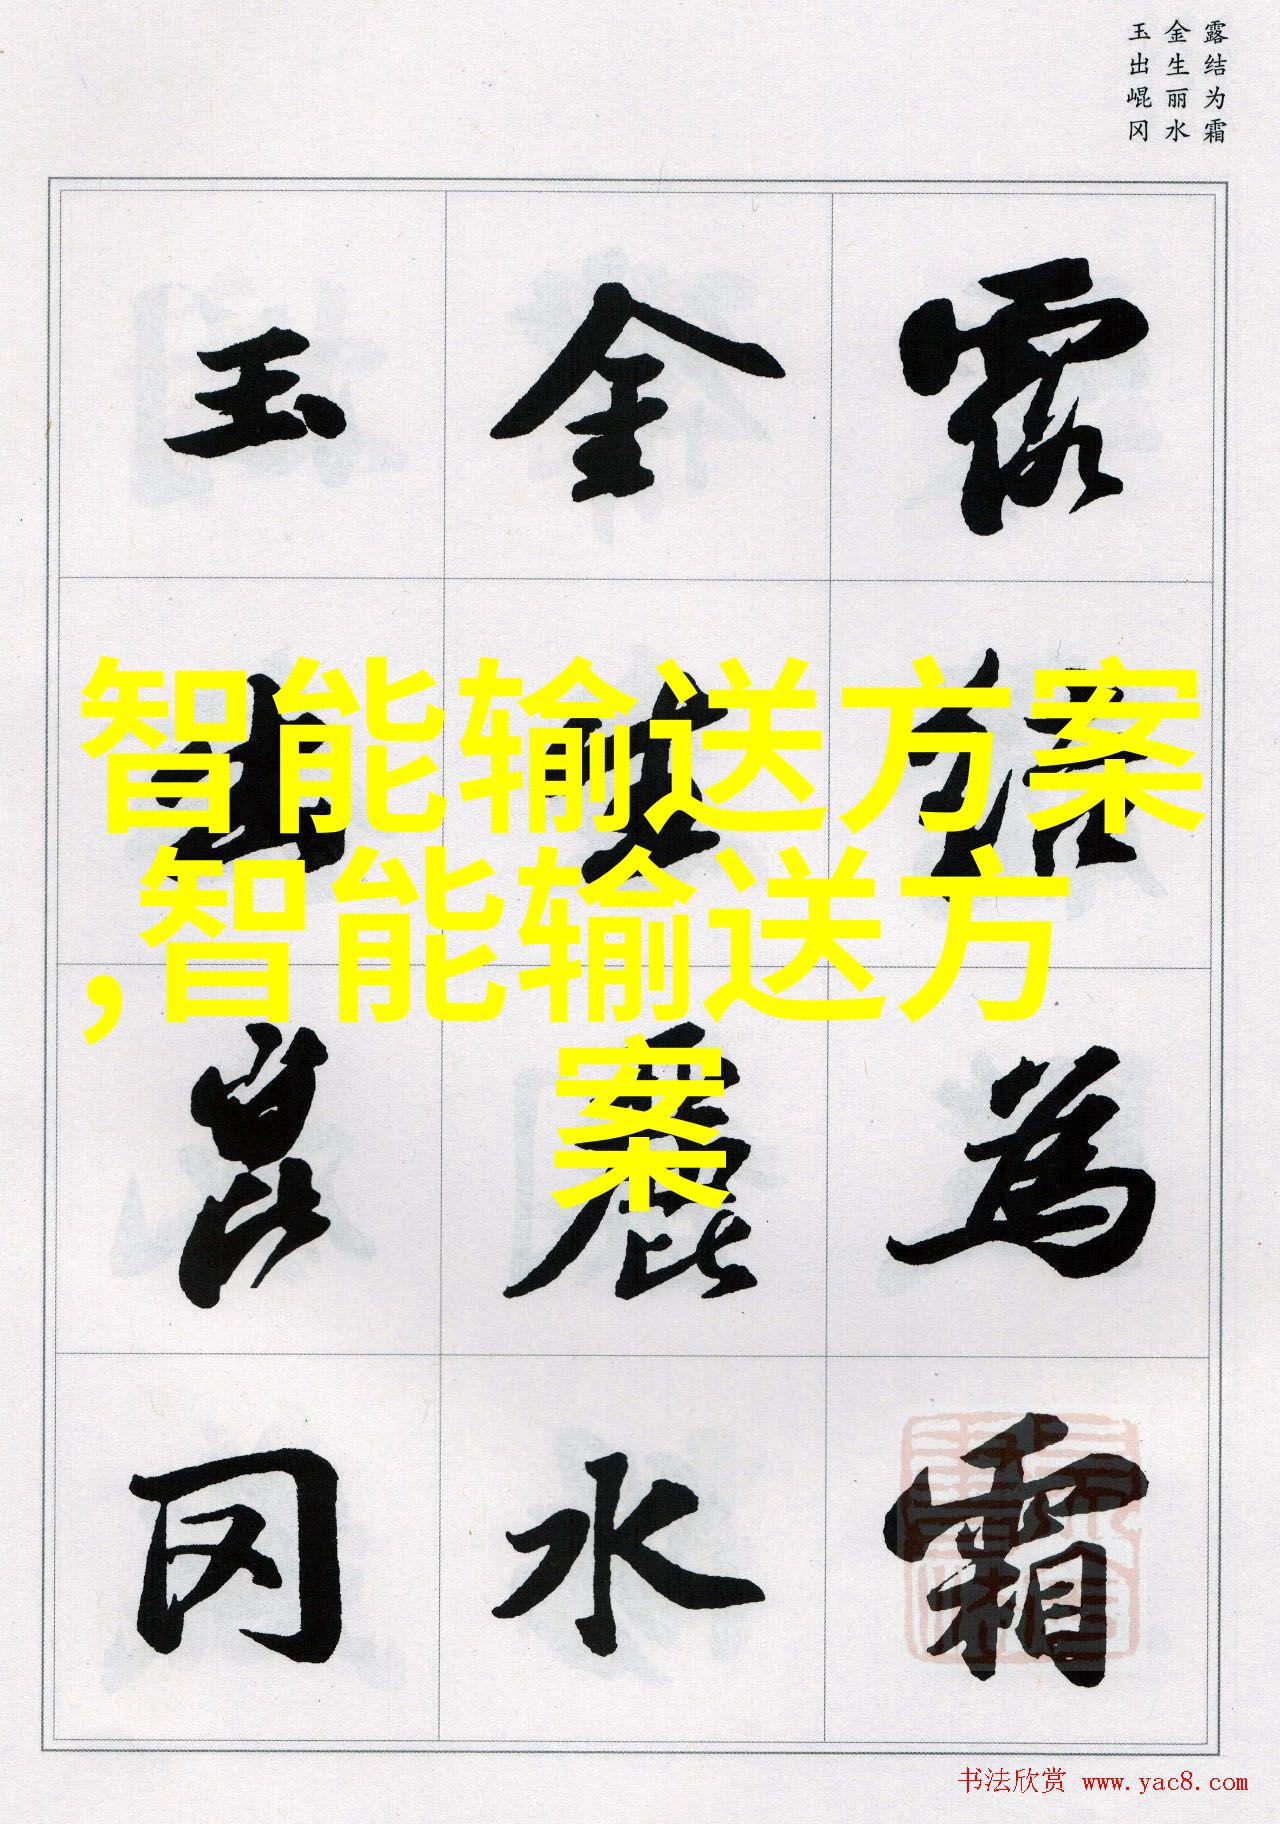 露结为霜
金生丽水
玉出崐冈
露結為霜
金生麗水
玉出崑冈
智能输送方案
,智能输送方
案
书法欣赏 www.yac8.com